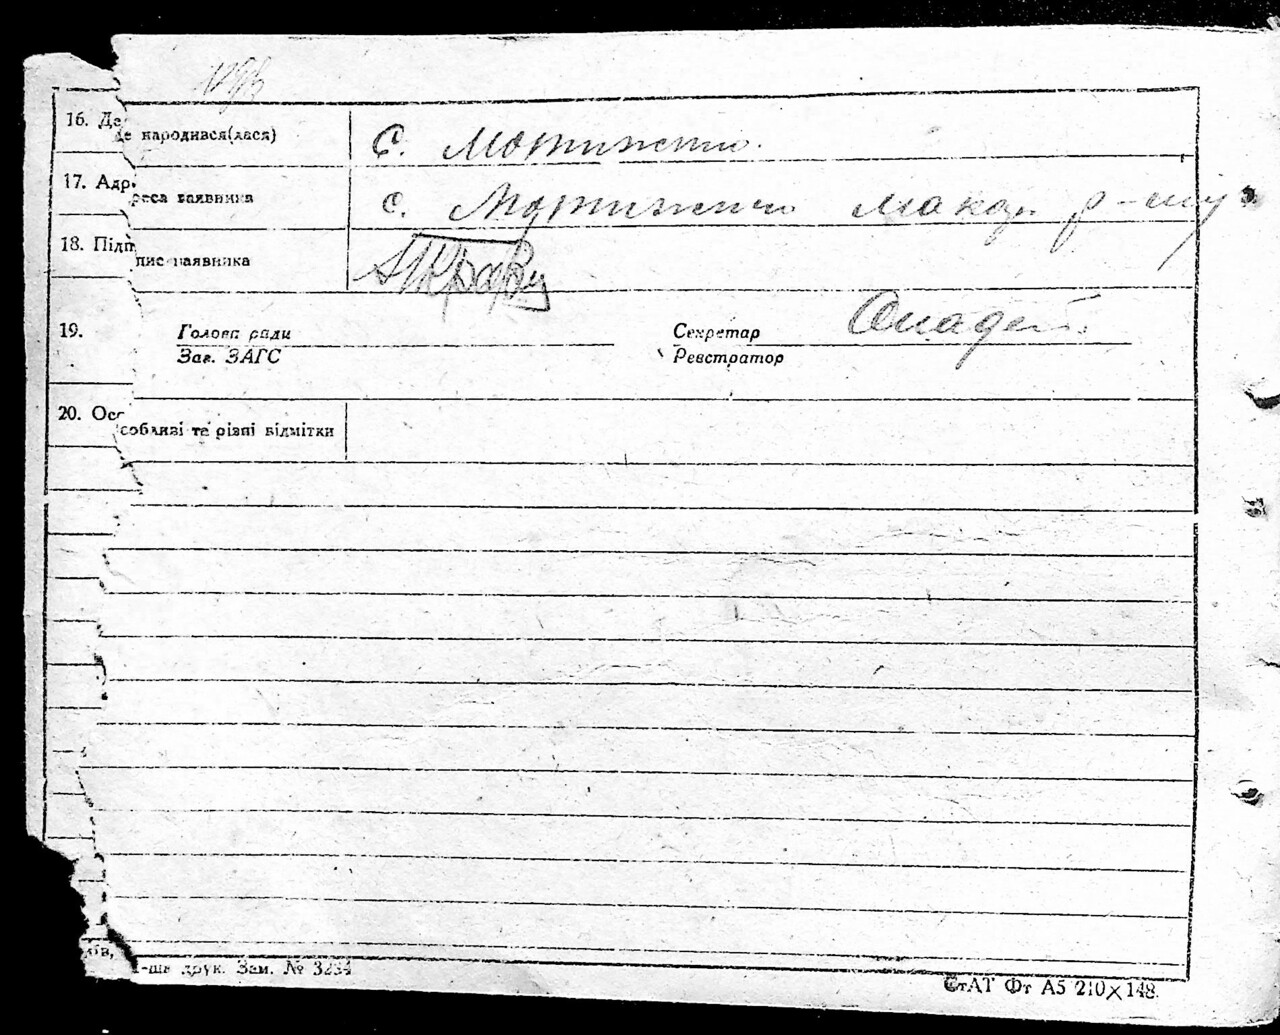 16. Де
де народився(лася)
с. Мотижин.
17. Адреса заявника
с. Мотижин Макар. р-ну
18. Підпис заявника
19. Голова ради
Секретар
Зав. ЗАГС
Реєстратор
20. Особливі та різні відмітки
1-ша друк. Зам. № 3234
СтАТ Фт А5 210×148.